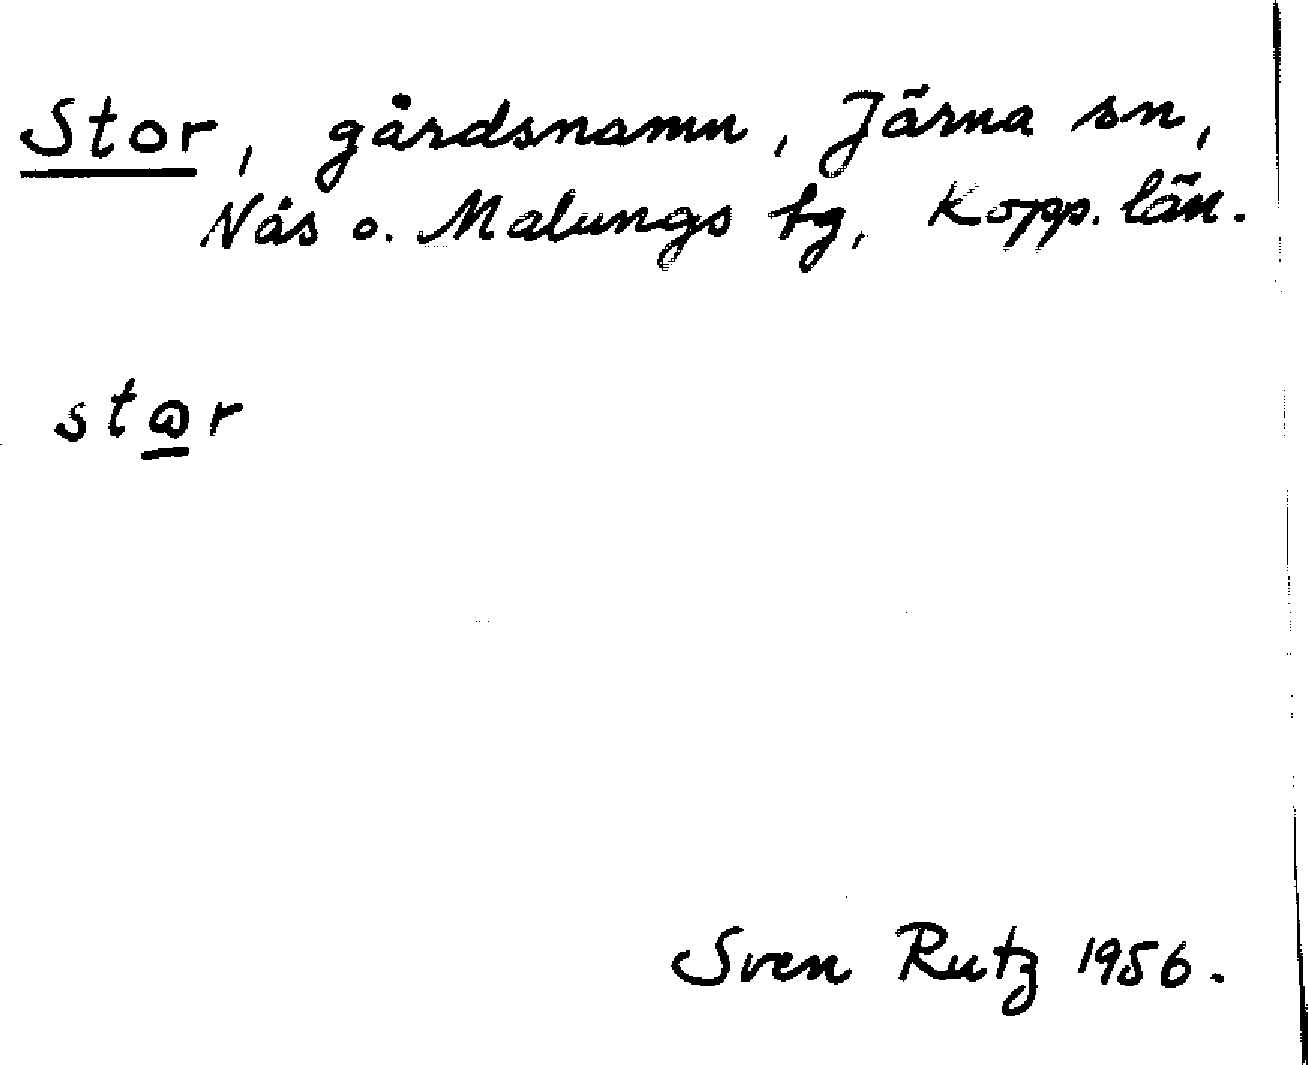 Stor, gårdsnamn, Järna sn,
Nås o. Malungs tg, Kopp. län.
Sven Rutz 1956.